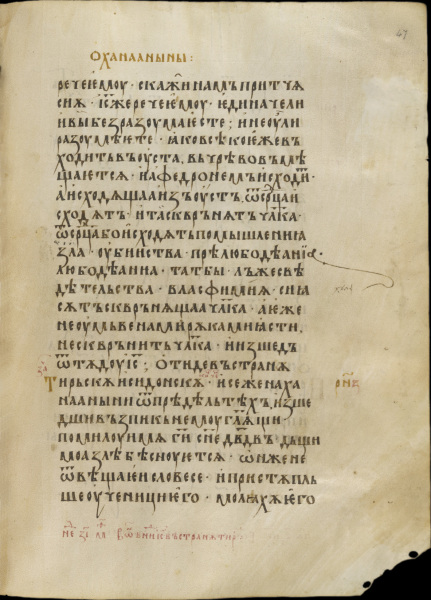 47
ѻ ханаанꙑнꙑ :
рече ѥмоу · скажи намъ притѫ
сиѫ · і҃с же рече ѥмоу · ѥдиначе ли
и вꙑ без разоума ѥсте ; и не оу ли
разоумѣѥте · ꙗко всѣко ѥже въ
ходитъ въ оуста, въ чрѣво въмѣ
щаѥтсѧ · и афедрономъ исходи ·
а исходѧщаа из оустъ, ѿ ср҃ца и
сходѧтъ · и та сквръннѧтъ чл҃ка ·
ѿ ср҃ца бо исходѧтъ помꙑшлениа
зла · оубииства · прѣлюбодѣанїа ·
любодѣаниа · татбꙑ · лъжесвѣ
дѣтельства · власфимиѫ · си на
сѫтъ сквръннѧщаа чл҃ка · а ѥже
не оумъвенами рѫками ꙗсти,
не сквръннитъ чл҃ка · и изшедъ
ѿтѫдоу і҃с ; отиде въ странꙑ
Тирьскꙑѫ и сидонскꙑѫ · и се жена ха
наанꙑни ѿ прѣдѣлъ тѣхъ, изше
дши възпи къ немоу гл҃ѧщи ·
помилоуи мѧ г҃и сн҃е дв҃двъ · дъщи
моа злѣ бѣсноуѥтсѧ · ѡн же не
ѿвѣща ѥи словесе · и пристѫпль
ше оученици ѥго · молѣхѫ ѥго